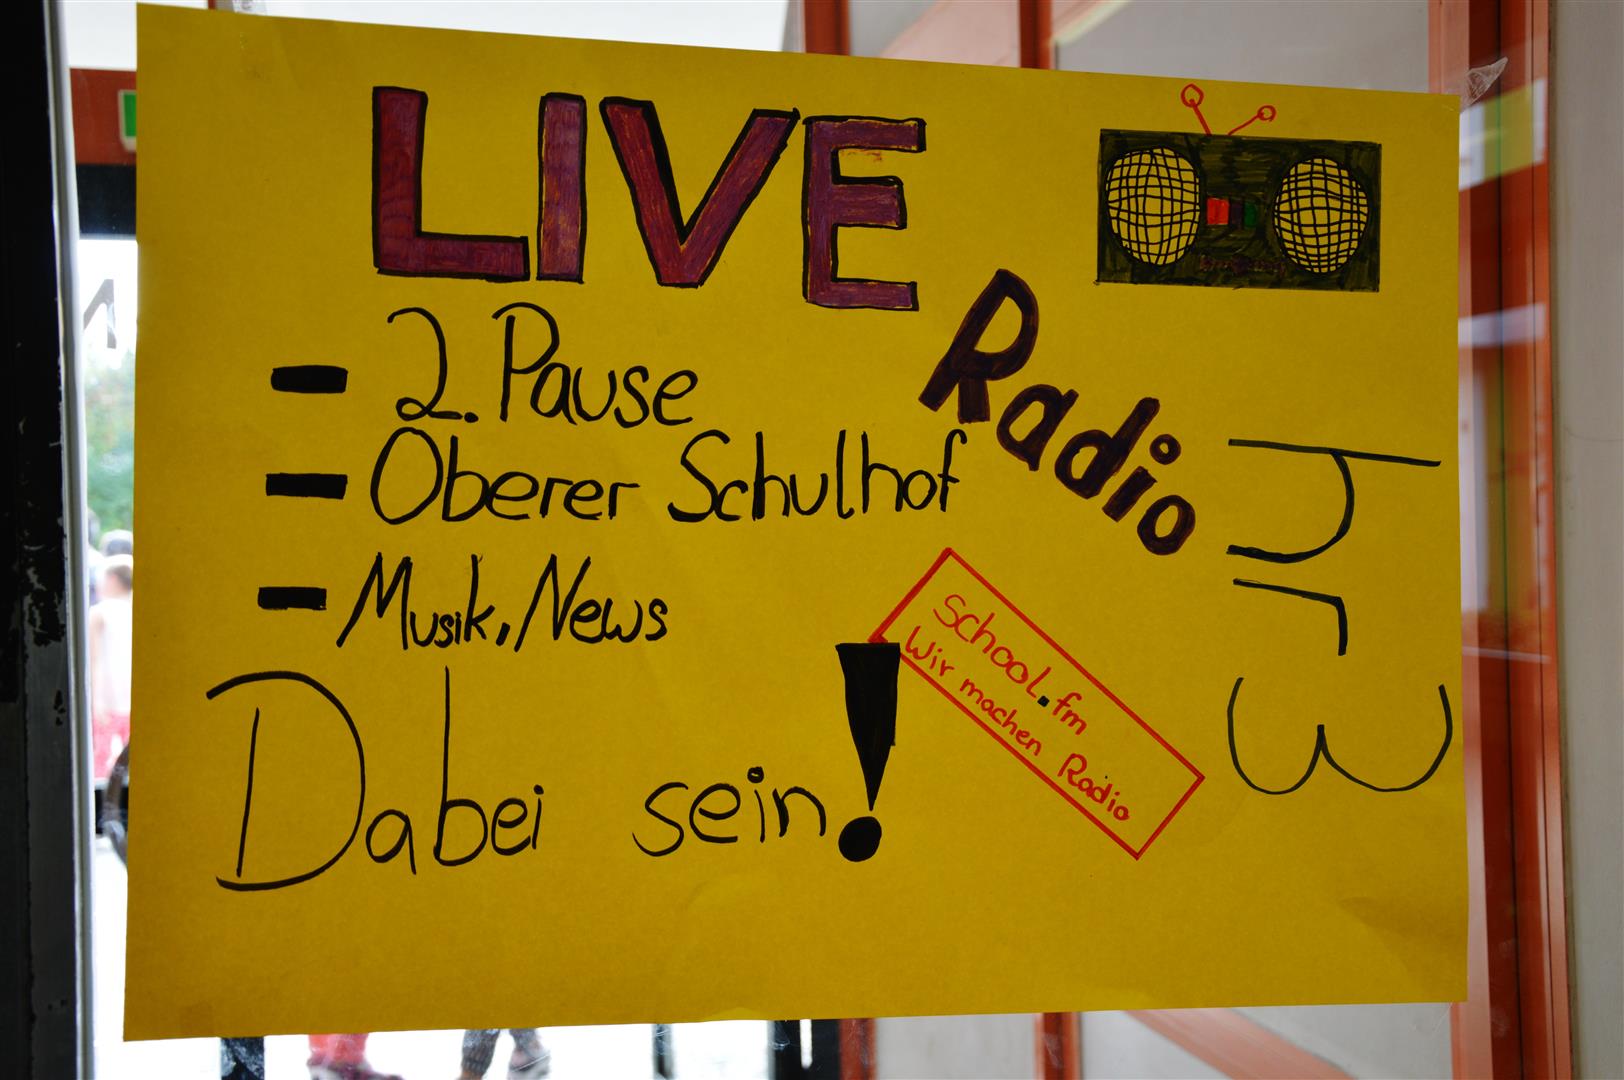 LIVE
Radio
- 2. Pause
- Oberer Schulhof
- Musik, News
Dabei sein!
School.fm
Wir machen Radio
hr3